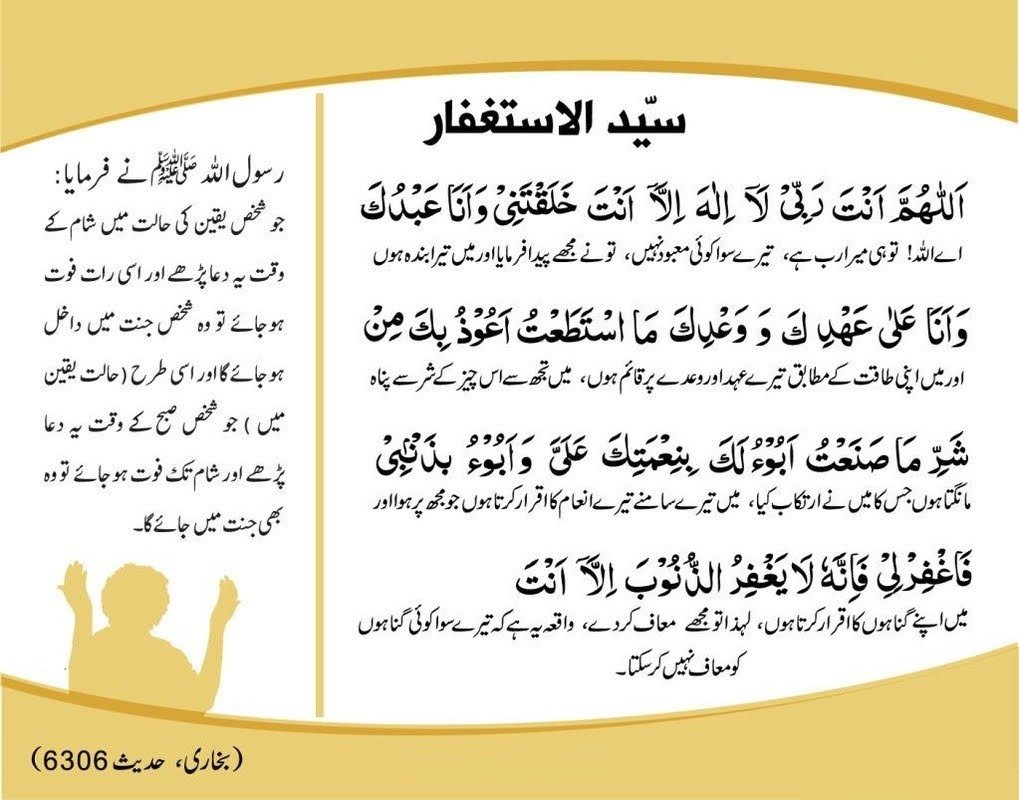 سیّد الاستغفار
اَللّٰهُمَّ اَنْتَ رَبِّيْ لَآ اِلٰهَ اِلَّآ اَنْتَ خَلَقْتَنِيْ وَاَنَا عَبْدُكَ
اے اللہ! تو ہی میرا رب ہے، تیرے سوا کوئی معبود نہیں، تو نے مجھے پیدا فرمایا اور میں تیرا بندہ ہوں
وَ اَنَا عَلٰى عَهْدِ كَ وَ وَعْدِكَ مَا اسْتَطَعْتُ اَعُوْذُ بِكَ مِنْ
اور میں اپنی طاقت کے مطابق تیرے عہد اور وعدے پر قائم ہوں، میں تجھ سے اس چیز کے شر سے پناہ
شَرِّ مَا صَنَعْتُ اَبُوْءُ لَكَ بِنِعْمَتِكَ عَلَيَّ وَ اَبُوْءُ بِذَنْۢبِيْ
مانگتا ہوں جس کا میں نے ارتکاب کیا، میں تیرے سامنے تیرے انعام کا اقرار کرتا ہوں جو مجھ پر ہوا اور
فَاغْفِرْلِيْ فَاِنَّهٗ لَا يَغْفِرُ الذُّنُوْبَ اِلَّآ اَنْتَ
میں اپنے گناہوں کا اقرار کرتا ہوں، لہذا تو مجھے معاف کر دے، واقعہ یہ ہے کہ تیرے سوا کوئی گناہوں
کو معاف نہیں کر سکتا۔
رسول اللہ ﷺ نے فرمایا:
جو شخص یقین کی حالت میں شام کے
وقت یہ دعا پڑھے اور اسی رات فوت
ہو جائے تو وہ شخص جنت میں داخل
ہو جائے گا اور اسی طرح (حالت یقین
میں) جو شخص صبح کے وقت یہ دعا
پڑھے اور شام تک فوت ہو جائے تو وہ
بھی جنت میں جائے گا۔
(بخاری، حدیث 6306)